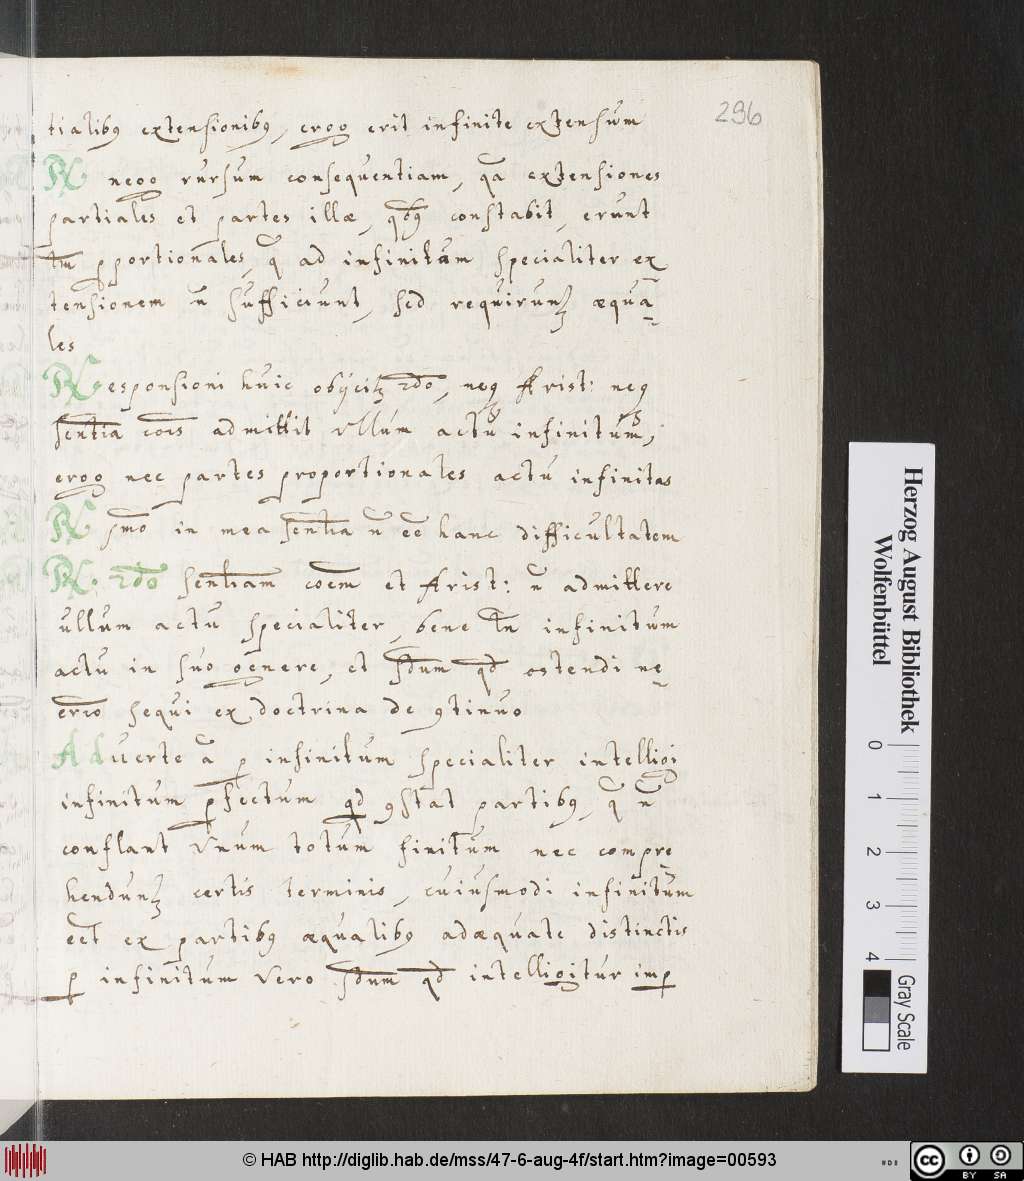 296
tialibꝰ extensionibꝰ, ergo erit infinite extensum
℞ nego rursum consequentiam, qa extensiones
partiales et partes illæ, qbꝰ constabit, erunt
tm̄ ꝓportionales, q̄ ad infinitam specialiter ex
tensionem n̄ sufficiunt, sed requirunꝫ æqua-
les
Responsioni huic obijcitꝫ 2do, neqꝫ Arist: neqꝫ
sentīa cōis admittit ullum actu infinitum,
ergo nec partes proportionales actu infinitas
℞ pmo in mea sentīa n̄ ēē hanc difficultatem
℞. 2do sentīam cōem et Arist: n̄ admittere
ullum actu specialiter, bene tn̄ infinitum
actu in suo genere, et sdum qd ostendi ne-
cērio sequi ex doctrina de ꝯtinuo
Aduerte ā ꝑ infinitum specialiter intelligi
infinitum ꝑfectum qd ꝯstat partibꝰ, q̄ n̄
conflant Vnum totum finitum nec compre
hendunꝫ certis terminis, cuiusmodi infinitum
eēt ex partibꝰ æqualibꝰ adæquate distinctis
ꝑ infinitum vero sdum qd intelligitur imꝑ
Herzog August Bibliothek
Wolfenbüttel
0 1 2 3 4
Gray Scale
© HAB http://diglib.hab.de/mss/47-6-aug-4f/start.htm?image=00593
cc BY SA